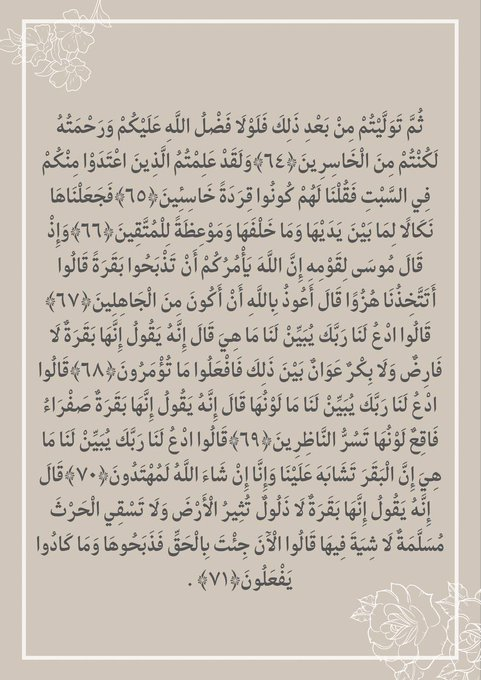 ثُمَّ تَوَلَّيْتُمْ مِنْ بَعْدِ ذَلِكَ فَلَوْلَا فَضْلُ اللَّهِ عَلَيْكُمْ وَرَحْمَتُهُ
لَكُنْتُمْ مِنَ الْخَاسِرِينَ﴿٦٤﴾وَلَقَدْ عَلِمْتُمُ الَّذِينَ اعْتَدَوْا مِنْكُمْ
فِي السَّبْتِ فَقُلْنَا لَهُمْ كُونُوا قِرَدَةً خَاسِئِينَ﴿٦٥﴾فَجَعَلْنَاهَا
نَكَالًا لِمَا بَيْنَ يَدَيْهَا وَمَا خَلْفَهَا وَمَوْعِظَةً لِلْمُتَّقِينَ﴿٦٦﴾وَإِذْ
قَالَ مُوسَى لِقَوْمِهِ إِنَّ اللَّهَ يَأْمُرُكُمْ أَنْ تَذْبَحُوا بَقَرَةً قَالُوا
أَتَتَّخِذُنَا هُزُوًا قَالَ أَعُوذُ بِاللَّهِ أَنْ أَكُونَ مِنَ الْجَاهِلِينَ﴿٦٧﴾
قَالُوا ادْعُ لَنَا رَبَّكَ يُبَيِّنْ لَنَا مَا هِيَ قَالَ إِنَّهُ يَقُولُ إِنَّهَا بَقَرَةٌ لَا
فَارِضٌ وَلَا بِكْرٌ عَوَانٌ بَيْنَ ذَلِكَ فَافْعَلُوا مَا تُؤْمَرُونَ﴿٦٨﴾قَالُوا
ادْعُ لَنَا رَبَّكَ يُبَيِّنْ لَنَا مَا لَوْنُهَا قَالَ إِنَّهُ يَقُولُ إِنَّهَا بَقَرَةٌ صَفْرَاءُ
فَاقِعٌ لَوْنُهَا تَسُرُّ النَّاظِرِينَ﴿٦٩﴾قَالُوا ادْعُ لَنَا رَبَّكَ يُبَيِّنْ لَنَا مَا
هِيَ إِنَّ الْبَقَرَ تَشَابَهَ عَلَيْنَا وَإِنَّا إِنْ شَاءَ اللَّهُ لَمُهْتَدُونَ﴿٧٠﴾قَالَ
إِنَّهُ يَقُولُ إِنَّهَا بَقَرَةٌ لَا ذَلُولٌ تُثِيرُ الْأَرْضَ وَلَا تَسْقِي الْحَرْثَ
مُسَلَّمَةٌ لَا شِيَةَ فِيهَا قَالُوا الْآنَ جِئْتَ بِالْحَقِّ فَذَبَحُوهَا وَمَا كَادُوا
يَفْعَلُونَ﴿٧١﴾ .